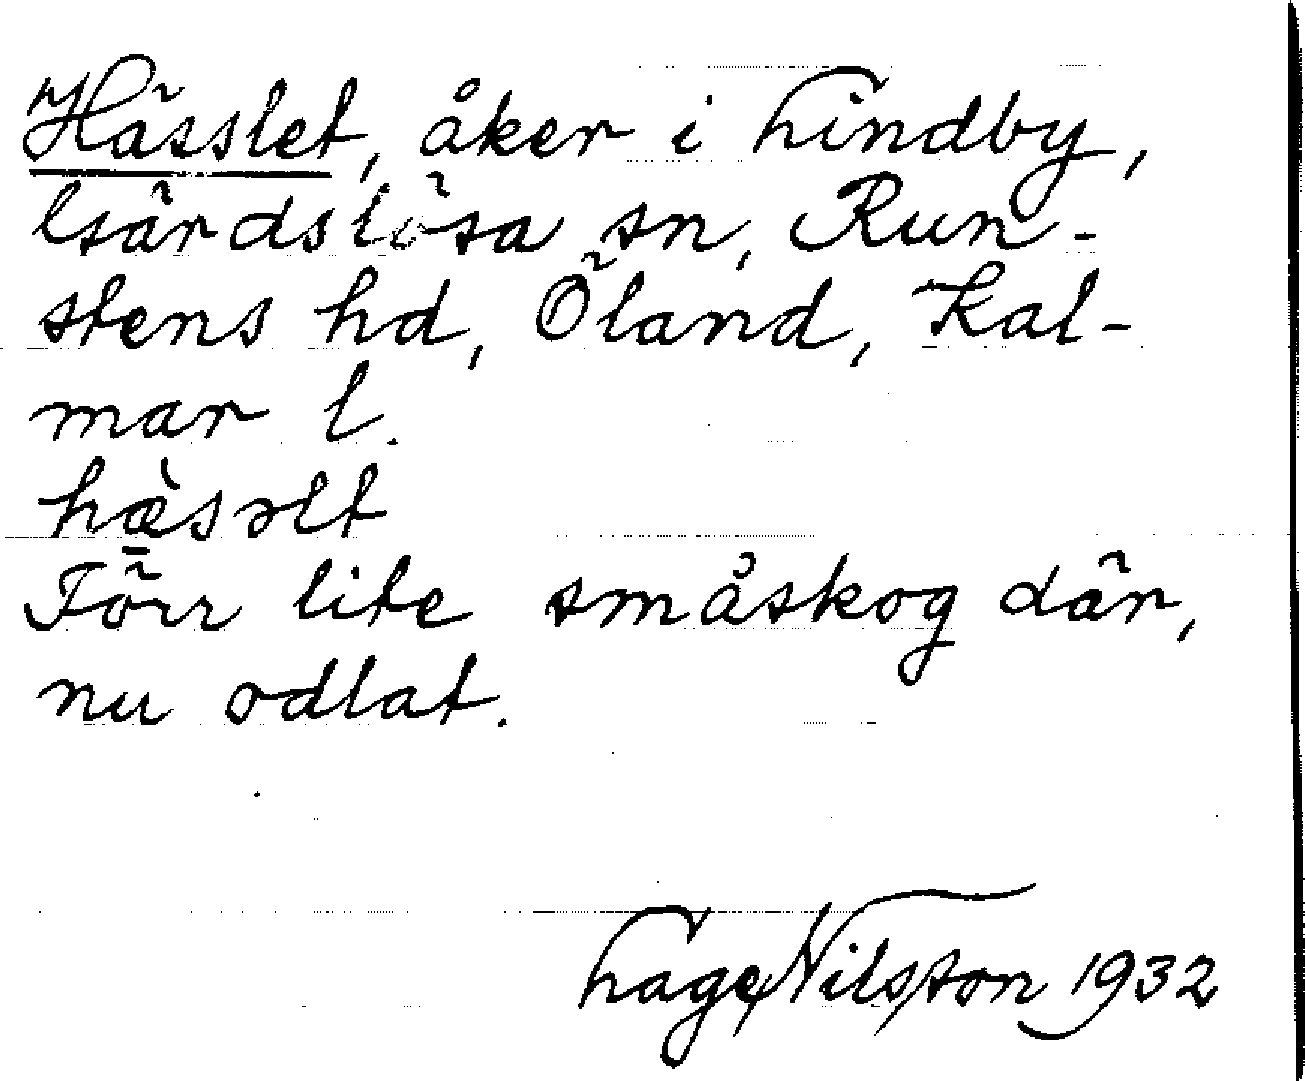 Hässlet, åker i Lindby,
Gärdslösa sn, Run-
stens hd, Öland, Kal-
mar l.
hæ̀səlt
Förr lite småskog där,
nu odlat.
Lage Nilsson 1932